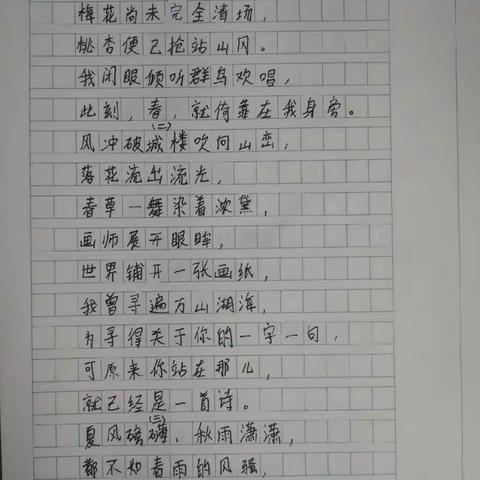 梅花尚未完全清场，
桃杏便已抢站山冈。
我闭眼倾听群鸟欢唱，
此刻，春，就倚靠在我身旁。
（二）
风冲破城楼吹向山峦，
落花淹出流光，
春草一舞染着浓黛，
画师展开眼眸，
世界铺开一张画纸，
我曾寻遍万山湖海，
为寻得关于你的一字一句，
可原来你站在那儿，
就已经是一首诗。
（三）
夏风磅礴、秋雨潇潇，
都不如春雨的风强，